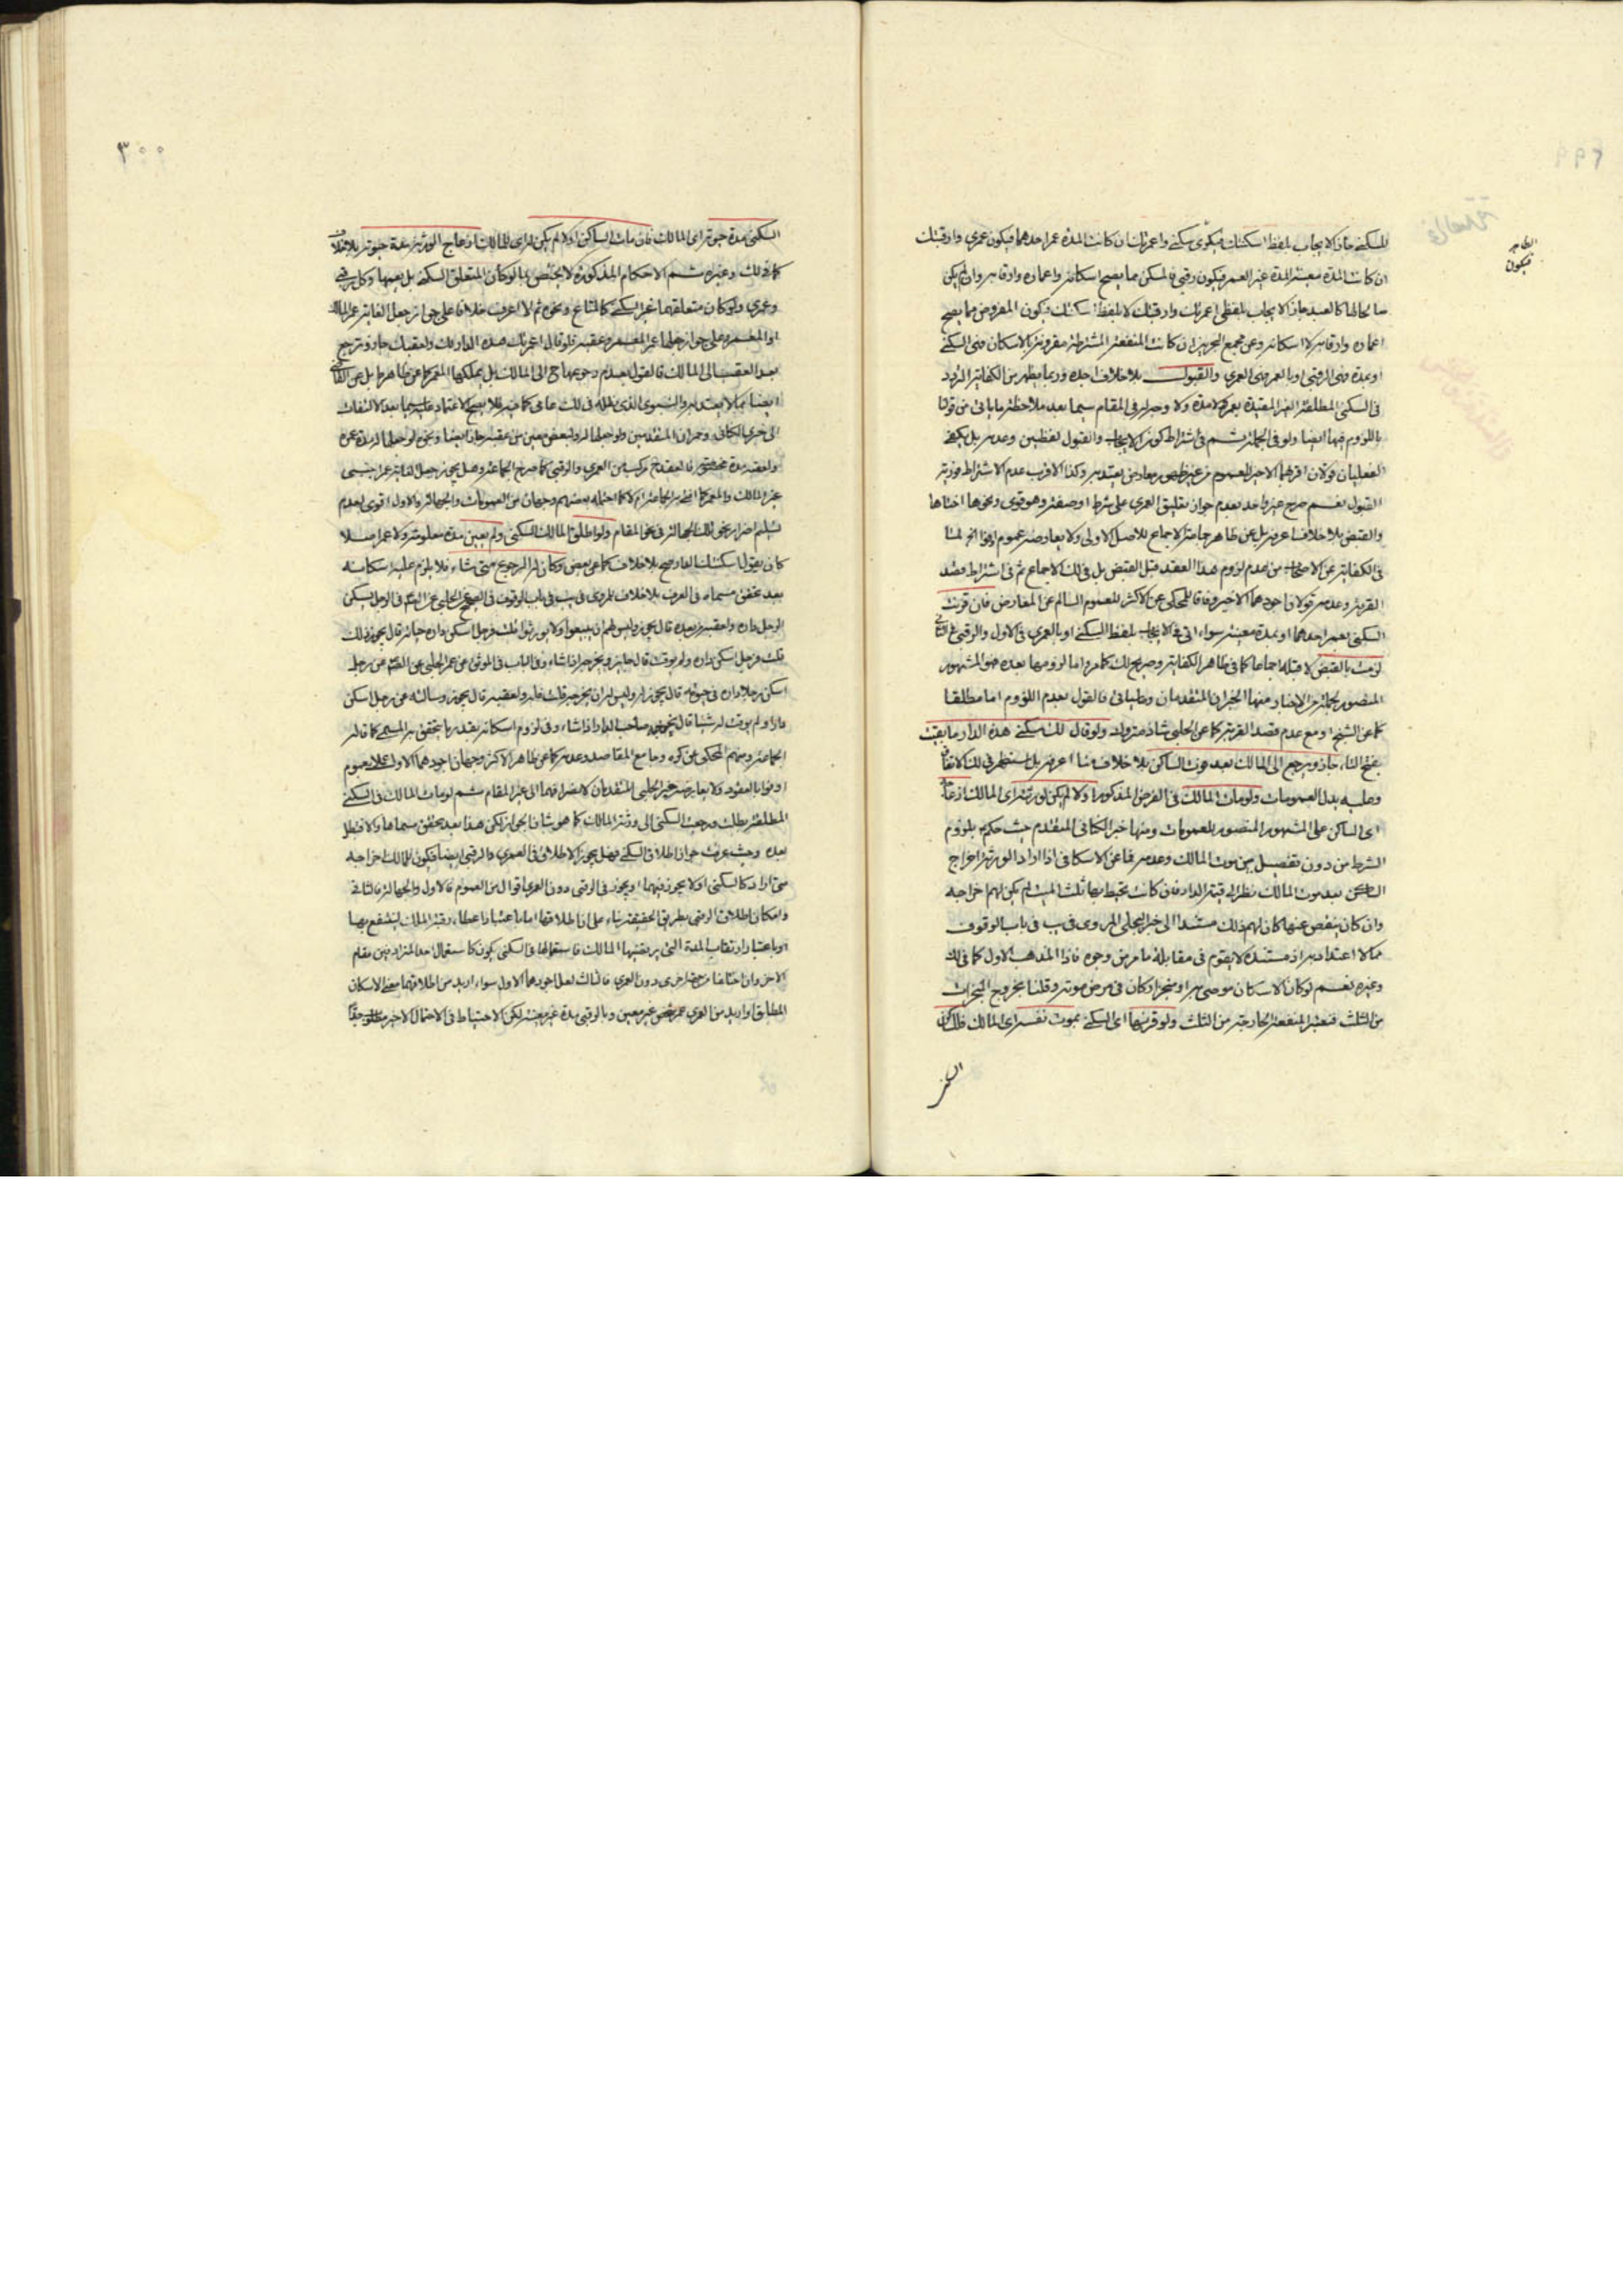 للسكنى جاز الايجاب بلفظ اسكنتك فيكون سكنى واعمرتك ان كانت المدة عمر احدهما فيكون عمرى وارقبتك
ان كانت المدة معينة المدة غير العمر فيكون رقبى فالمسكن مما يصح اسكانه واعماره وارقابه وان لم يكن
مسكنا كالعبد جاز الايجاب بلفظى اعمرتك وارقبتك لا بلفظ اسكنتك فيكون المفروض مما يصح
اعماره وارقابه لا اسكانه وعن جمع التحرير ان كانت المنفعة المشترطة مقرونة بالاسكان فهى السكنى
او بمدة فهى الرقبى او بالعمر فهى العمرى والقبول بلا خلاف اجده وربما يظهر من الكفاية التردد
فى السكنى المطلقة الغير المقيدة بعمر ولا مدة ولا وجه له فى المقام سيما بعد ملاحظة ما ياتى من قولنا
باللزوم فيها ايضا ولو فى الجملة ثم فى اشتراط كون الايجاب والقبول لفظيين وعدمه بل يكفى
الفعليان قولان اقربهما الاخير للعموم من غير ظهور معارض يعتد به وكذا الاقرب عدم الاشتراط فورية
القبول نعم صرح غير واحد بعدم جواز تعليق العمرى على شرط او صفة وهو قوى ونحوها اختاها
والقبض بلا خلاف اعرفه بل عن ظاهر جماعة الاجماع للاصل الاولى ولا يعارضه عموم اوفوا الخ لما
فى الكفاية عن الاصحاب من عدم لزوم هذا العقد قبل القبض بل فى لك الاجماع ثم فى اشتراط قصد
القربة وعدمه قولان اجودهما الاخير وفاقا للمحكى عن الاكثر للعموم السالم عن المعارض فان قرنت
السكنى بعمر احدهما او بمدة معينة سواء اتى فى الايجاب بلفظ السكنى او بالعمرى فى الاول والرقبى فى الثانى
لزمت بالقبض لا قبله اجماعا كما فى ظاهر الكفاية وصريح لك كما مر واما لزومها بعده هو المشهور
المنصور بجملة من الاخبار منها الخبران المتقدمان وما ياتى فالقول بعدم اللزوم اما مطلقا
كما عن الشيخ او مع عدم قصد القربة كما عن الحلبى شاذ متروك ولو قال لك سكنى هذه الدار ما بقيت
بفتح التاء جاز ويرجع الى المالك بعد موت الساكن بلا خلاف منا اعرفه بل استظهر فى لك الاتفاق
وعليه يدل العمومات ولو مات المالك فى الفرض المذكور اولا لم يكن لورثته اى المالك ازعاجه
اى الساكن على المشهور المنصور بالعمومات ومنها خبر الكنانى المتقدم حيث حكم بلزوم
الشرط من دون تفصيل بين موت المالك وعدمه فما عن الاسكافى اذا اراد الورثة اخراج
الساكن بعد موت المالك نظر الى قيمة الدار فان كانت يحيط بها ثلث الميت لم يكن لهم اخراجه
وان كان ينقص عنها كان لهم ذلك مستندا الى خبر البجلى المروى فى يب فى باب الوقوف
مما لا اعتداد به اذ مستنده لا يقوم فى مقابلة ما مر من وجوه فاذا المذهب الاول كما فى لك
وغيره نعم لو كان الاسكان موصى به او منجزا وكان فى مرض موته وقلنا بخروج المنجزات
من الثلث فتعتبر المنفعة الخارجة من الثلث ولو قرنها اى السكنى بموت نفسه اى المالك فللساكن
السكنى
الظاهر
فيكون
٢٩٩
٣٠٠
السكنى مدة حيوته اى المالك فان مات الساكن اولا لم يكن له اى للمالك ازعاج الورثة مدة حيوته بلا خلاف
كما فى لك وغيره ثم الاحكام المذكورة لا يختص بما لو كان المتعلق السكنى بل يعمها وكل رقبى
وعمرى ولو كان متعلقهما غير السكنى كالمتاع ونحوه ثم لا اعرف خلافا على جواز جعل الغاية عمر المالك
او المعمر وعلى جواز جعلها عمر المعمر وعقبه فلو قال اعمرتك هذه الدار لك ولعقبك جاز وترجع
بعد العقب الى المالك فالقول بعدم رجوعها الى المالك بل يملكها المعمر كما عن ظاهر بل عن القاضى
ايضا مما لا يعتد به والنبوى الدال له فى لك عامى كما فيه فلا يصح الاعتماد عليه سيما بعد الالتفات
الى خبرى الكنانى وحمران المتقدمين ولو جعلها له ولبعض معين من عقبه جاز ايضا ونحوه لو جعلها له مدة عمره
ولعقبه مدة مخصوصة فالعقد ح مركب من العمرى والرقبى كما صرح الجماعة وهل يجوز جعل الغاية عمر اجنبى
غير المالك والمعمر كما افتى به جماعة ام لا كما احتمله بعضهم وجهان من العمومات والجهالة والاول اقوى لعدم
تسليم اضرار نحو تلك الجهالة فى نحو المقام ولو اطلق المالك السكنى ولم يعين مدة معلومة ولا عمرا اصلا
كان يقول اسكنتك الدار صح بلا خلاف كما عن بعض وكان له الرجوع متى شاء فلا يلزم عليه اسكانه
بعد تحقق مسماه فى العرف بلا خلاف للمروى فى يب فى باب الوقوف فى الصحيح عن الحلبى عن الصادق فى الرجل يسكن
الرجل داره ولعقبه من بعده قال يجوز وليس لهم ان يبيعوا ولا يورثوا قلت فرجل اسكن داره حياته قال يجوز ذلك
قلت فرجل اسكن داره ولم يوقت قال جايز ويخرجه اذا شاء وفى الباب فى الموثق عن الحلبى عن الصادق عن رجل
اسكن رجلا داره فى حيوته قال يجوز له وليس له ان يخرجه قلت فله ولعقبه قال يجوز وسالته عن رجل اسكن
دارا ولم يوقت له شيئا قال يخرجه صاحب الدار اذا شاء وفى لزوم اسكانه بقدر ما يتحقق به المسمى كما قاله
الجماعة ومنهم المحكى عن كره وجامع المقاصد وعدمه كما عن ظاهر الاكثر وجهان اجودهما الاول عملا بعموم
اوفوا بالعقود ولا يعارضه خبر الحلبى المتقدمان لانصرافهما الى غير المقام ثم لو مات المالك فى السكنى
المطلقة بطلت ورجعت السكنى الى ورثة المالك كما هو شان الجواز لكن هذا بعد تحقق مسماها والا فتبطل
بعده وحيث عرفت جواز اطلاق السكنى فهل يجوز الاطلاق فى العمرى والرقبى ايضا فيكون للمالك اخراجه
متى اراد كالسكنى او لا يجوز فيهما او يجوز فى الرقبى دون العمرى اقوال من العموم فالاول والجهالة فالثانى
وامكان اطلاق الرقبى بطريق الحقيقة بناء على ان اطلاقها اما باعتبار اعطاء رقبة الملك لينتفع بها
او باعتبار ارتقاب المدة التى يرتقبها المالك فاستعمالها فى السكنى يكون كاستعمال احد المترادفين مقام
الاخر وان اختلفا من جهة اخرى دون العمرى فالثالث لعل اجودهما الاول سواء اريد من اطلاقهما معنى الاسكان
المطلق او اريد من العمرى عمر شخص غير معين وبالرقبى مدة غير معينة لكن الاحتياط فى الاحتمال الاخير مطلوب جدا